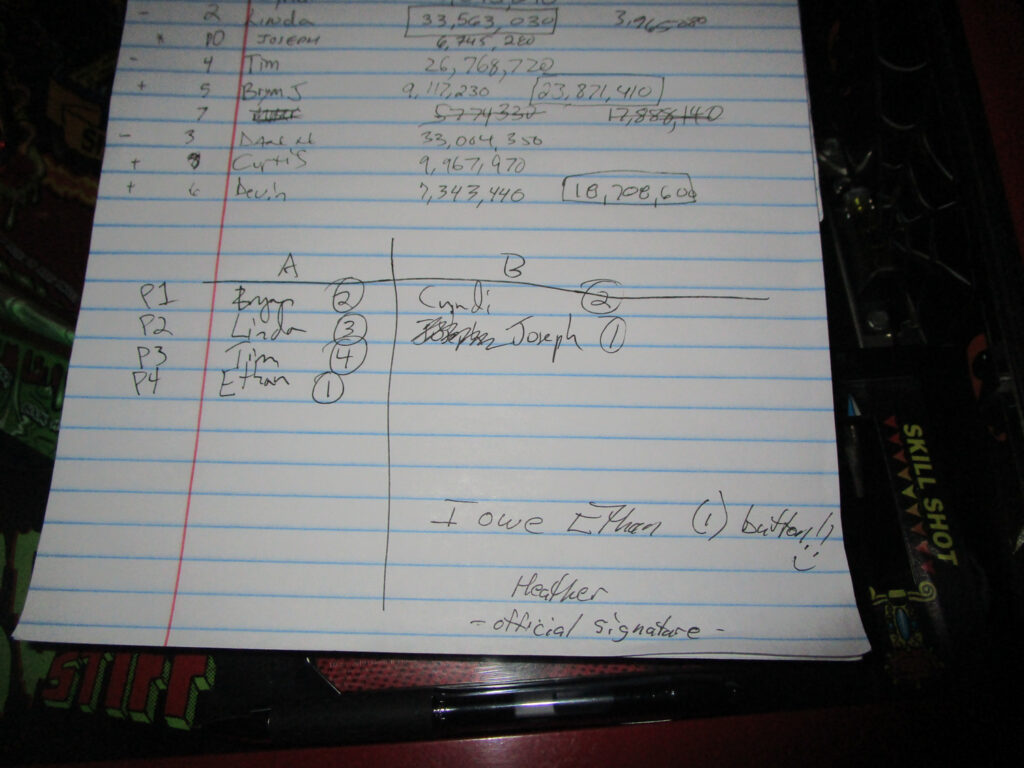 - 2 Linda 33,563,030 3,965,080
* PO JOSEPH 6,745,280
- 4 Tim 26,768,720
+ 5 Bryan J 9,117,230 23,871,410
7 5774330 17,888,140
- 3 33,004,350
+ Curtis 9,967,970
+ 6 Devin 7,343,440 18,708,600
A B
P1 Bryan 2 Cyndi 2
P2 Linda 3 Joseph 1
P3 Tim 4
P4 Ethan 1
I owe Ethan (1) button!!
Heather
- official signature -
SKILL SHOT